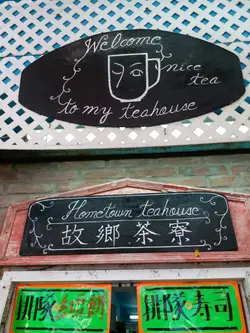 Welcome
nice
tea
to my teahouse
Hometown teahouse
故鄉茶寮
排隊紅豆餅
排隊壽司